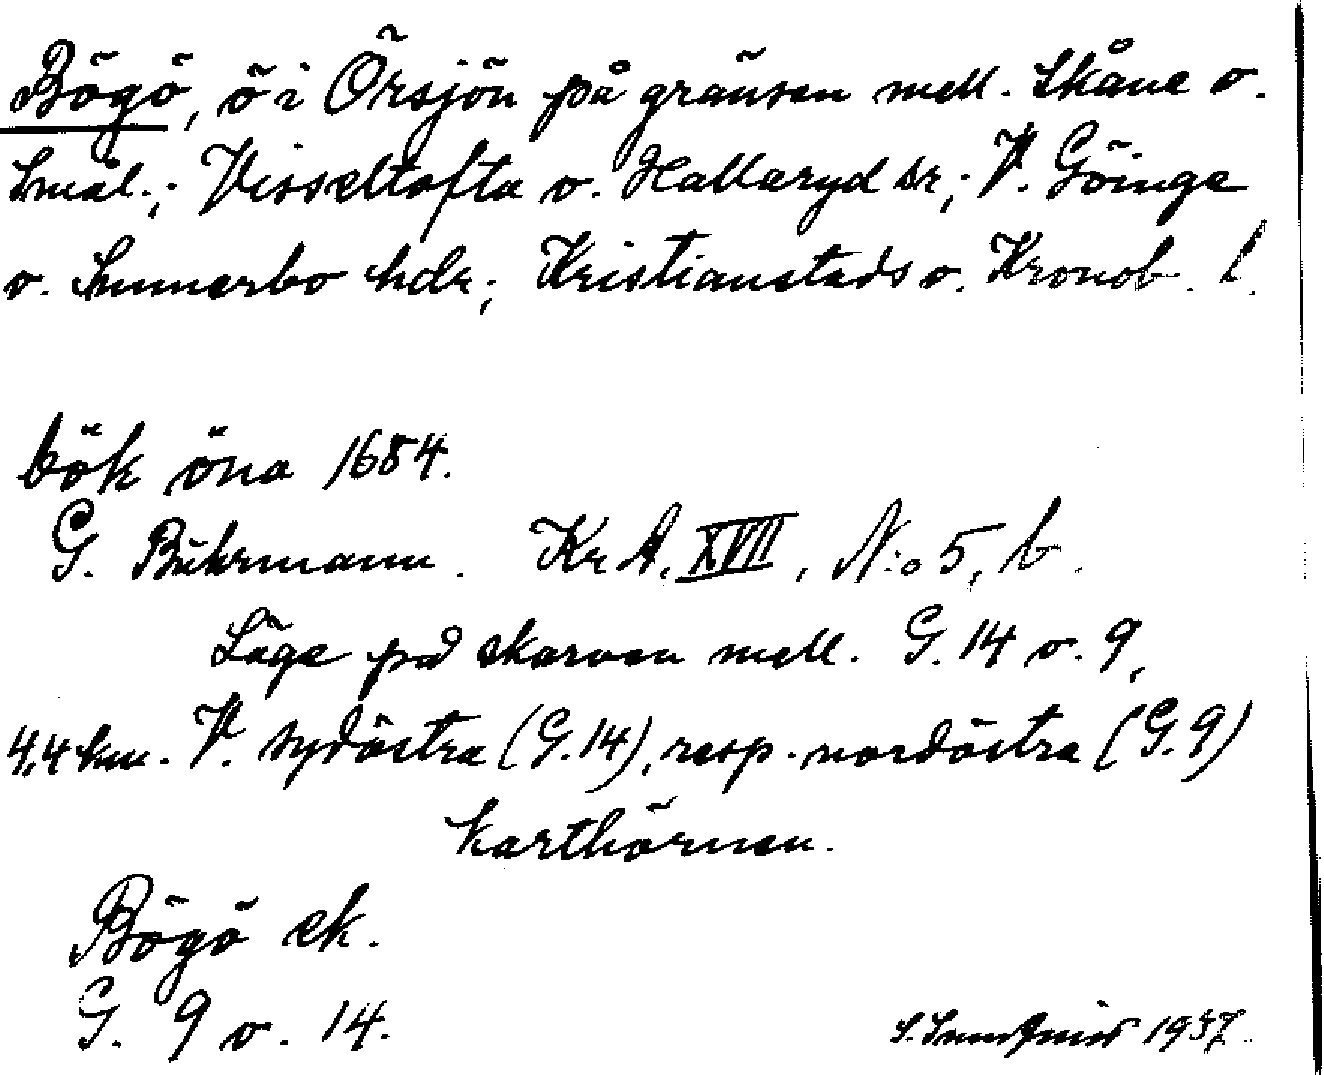 Bögö, ö i Örsjön på gränsen mell. Skåne o.
Smål.; Visseltofta o. Hallaryd sr; V. Göinge
o. Sunnerbo hdr; Kristianstads o. Kronob. l.
bök öna 1684.
G. Buhrmann. Kr A, XVII, N:o 5, b.
Läge på skarven mell. G. 14 o. 9,
4,4 km. V. sydöstra (G. 14), resp. nordöstra (G. 9)
karthörnen.
Bögö ek.
G. 9 o. 14.
S. Sundqvist 1937.